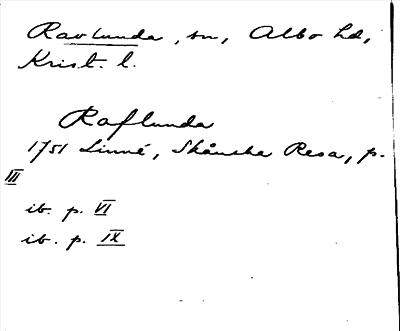 Ravlunda, sn, Albo hd,
Krist. l.
Raflunda
1751 Linné, Skånska Resa, p.
III
ib. p. VI
ib. p. IX